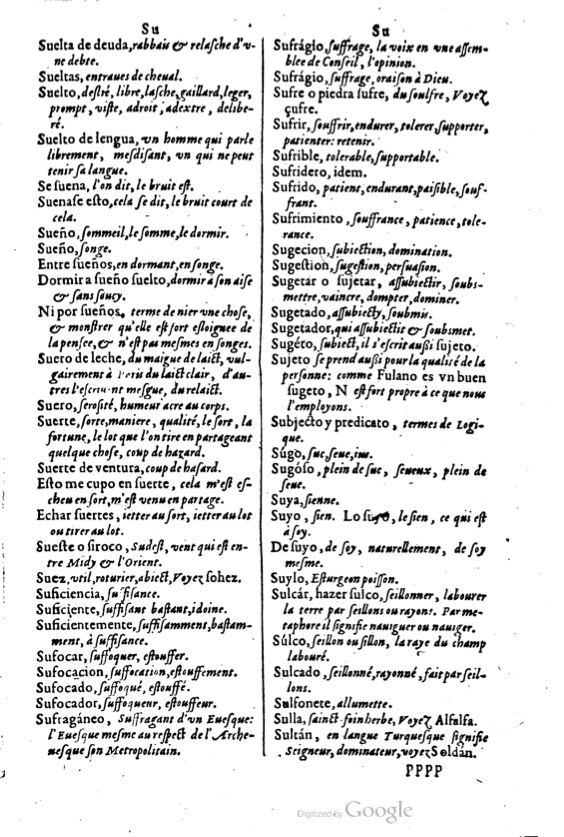 Su
Suelta de deuda, rabbais & relasche d'v-
ne debte.
Sueltas, entraues de cheual.
Suelto, destré, libre, lasche, gaillard, leger,
prompt, viste, adroit, adextre, delibe-
ré.
Suelto de lengua, vn homme qui parle
librement, mesdisant, vn qui ne peut
tenir sa langue.
Se suena, l'on dit, le bruit est.
Suenase esto, cela se dit, le bruit court de
cela.
Sueño, sommeil, le somme, le dormir.
Sueño, songe.
Entre sueños, en dormant, en songe.
Dormir a sueño suelto, dormir à son aise
& sans soucy.
Ni por sueños, terme de nier vne chose,
& monstrer qu'elle est fort esloignee de
la pensee, & n'est pas mesmes en songes.
Suero de leche, du maigue de laict, vul-
gairement à Paris du laict clair, d'au-
tres l'escriuent mesgue, du relaict.
Suero, serosité, humeur acre au corps.
Suerte, sorte, maniere, qualité, le sort, la
fortune, le lot que l'on tire en partageant
quelque chose, coup de hazard.
Suerte de ventura, coup de hasard.
Esto me cupo en suerte, cela m'est es-
cheu en sort, m'est venu en partage.
Echar suertes, ietter au sort, ietter au lot
ou tirer au lot.
Sueste o siroco, Sudest, vent qui est en-
tre Midy & l'Orient.
Suez, vil, roturier, abiect, Voyez sohez.
Suficiencia, suffisance.
Suficiente, suffisant bastant, idoine.
Suficientemente, suffisamment, bastam-
ment, à suffisance.
Sufocar, suffoquer, estouffer.
Sufocacion, suffocation, estouffement.
Sufocado, suffoqué, estouffé.
Sufocador, suffoqueur, estouffeur.
Sufragáneo, Suffragant d'vn Euesque:
l'Euesque mesme au respect de l'Arche-
uesque son Metropolitain.
Su
Sufrágio, suffrage, la voix en vne assem-
blee de Conseil, l'opinion.
Sufrágio, suffrage, oraison à Dieu.
Sufre o piedra sufre, du soulfre, Voyez
çufre.
Sufrir, souffrir, endurer, tolerer, supporter,
patienter: retenir.
Sufrible, tolerable, supportable.
Sufridero, idem.
Sufrido, patient, endurant, paisible, souf-
frant.
Sufrimiento, souffrance, patience, tole-
rance.
Sugecion, subiection, domination.
Sugestion, sugestion, persuasion.
Sugetar o sujetar, assubiectir, soubs-
mettre, vaincre, dompter, dominer.
Sugetado, assubiecty, soubmis.
Sugetador, qui assubiectit & soubsmet.
Sugéto, subiect, il s'escrit aussi sujeto.
Sujeto se prend aussi pour la qualité de la
personne: comme Fulano es vn buen
sugeto, N est fort propre à ce que nous
l'employons.
Subjecto y predicato, termes de Logi-
que.
Súgo, suc, seue, ius.
Sugóso, plein de suc, seueux, plein de
seue.
Suya, sienne.
Suyo, sien. Lo suyo, le sien, ce qui est
à soy.
De suyo, de soy, naturellement, de soy
mesme.
Suylo, Esturgeon poisson.
Sulcár, hazer sulco, seillonner, labourer
la terre par seillons ou rayons. Par me-
taphore il signifie nauiguer ou nauiger.
Súlco, seillon ou sillon, la raye du champ
labouré.
Sulcado, seillonné, rayonné, fait par seil-
lons.
Sulfonete, allumette.
Sulla, sainct-foin herbe, Voyez Alfalfa.
Sultán, en langue Turquesque signifie
Seigneur, dominateur, voyez Soldán.
PPPP
Digitized by Google